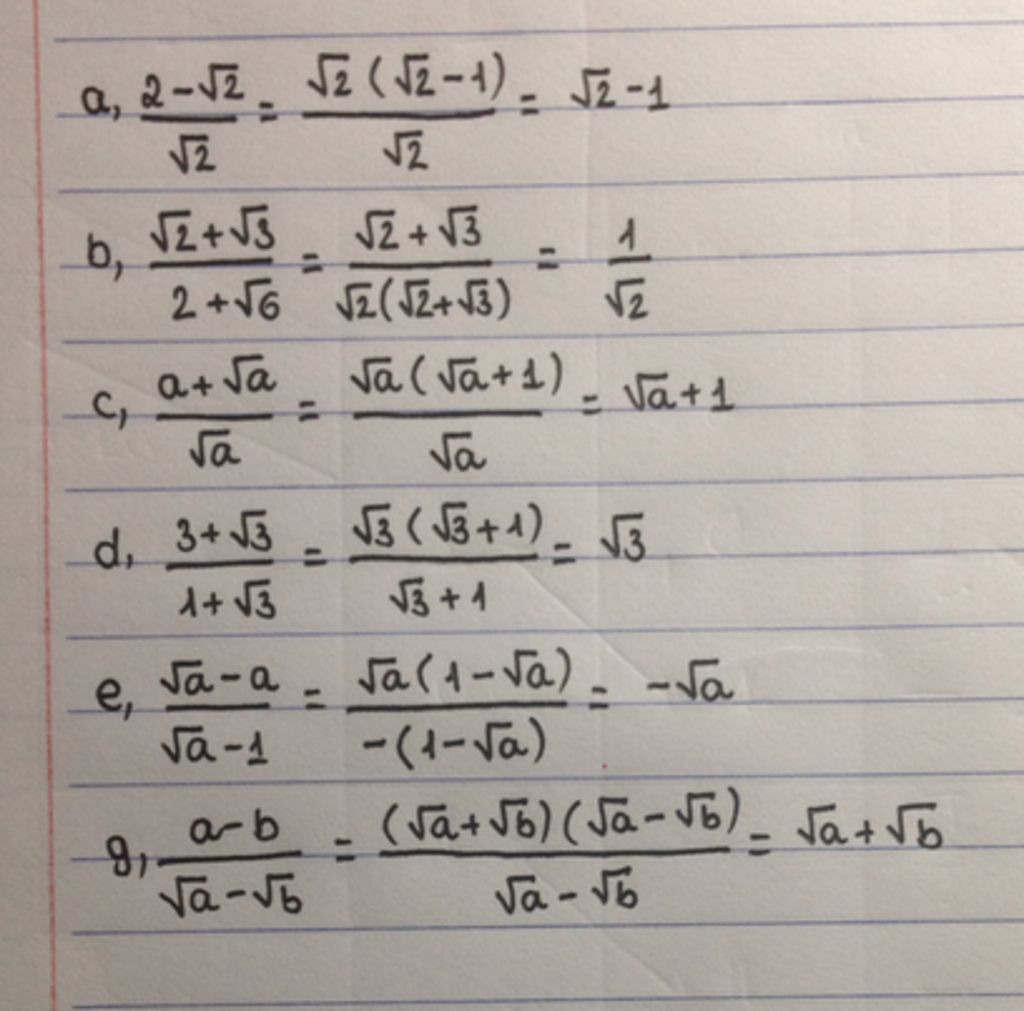 a, (2-√2)/√2 = √2(√2-1)/√2 = √2-1
b, (√2+√3)/(2+√6) = (√2+√3)/(√2(√2+√3)) = 1/√2
c, (a+√a)/√a = √a(√a+1)/√a = √a+1
d, (3+√3)/(1+√3) = √3(√3+1)/(√3+1) = √3
e, (√a-a)/(√a-1) = √a(1-√a)/(-(1-√a)) = -√a
g, (a-b)/(√a-√b) = (√a+√b)(√a-√b)/(√a-√b) = √a+√b